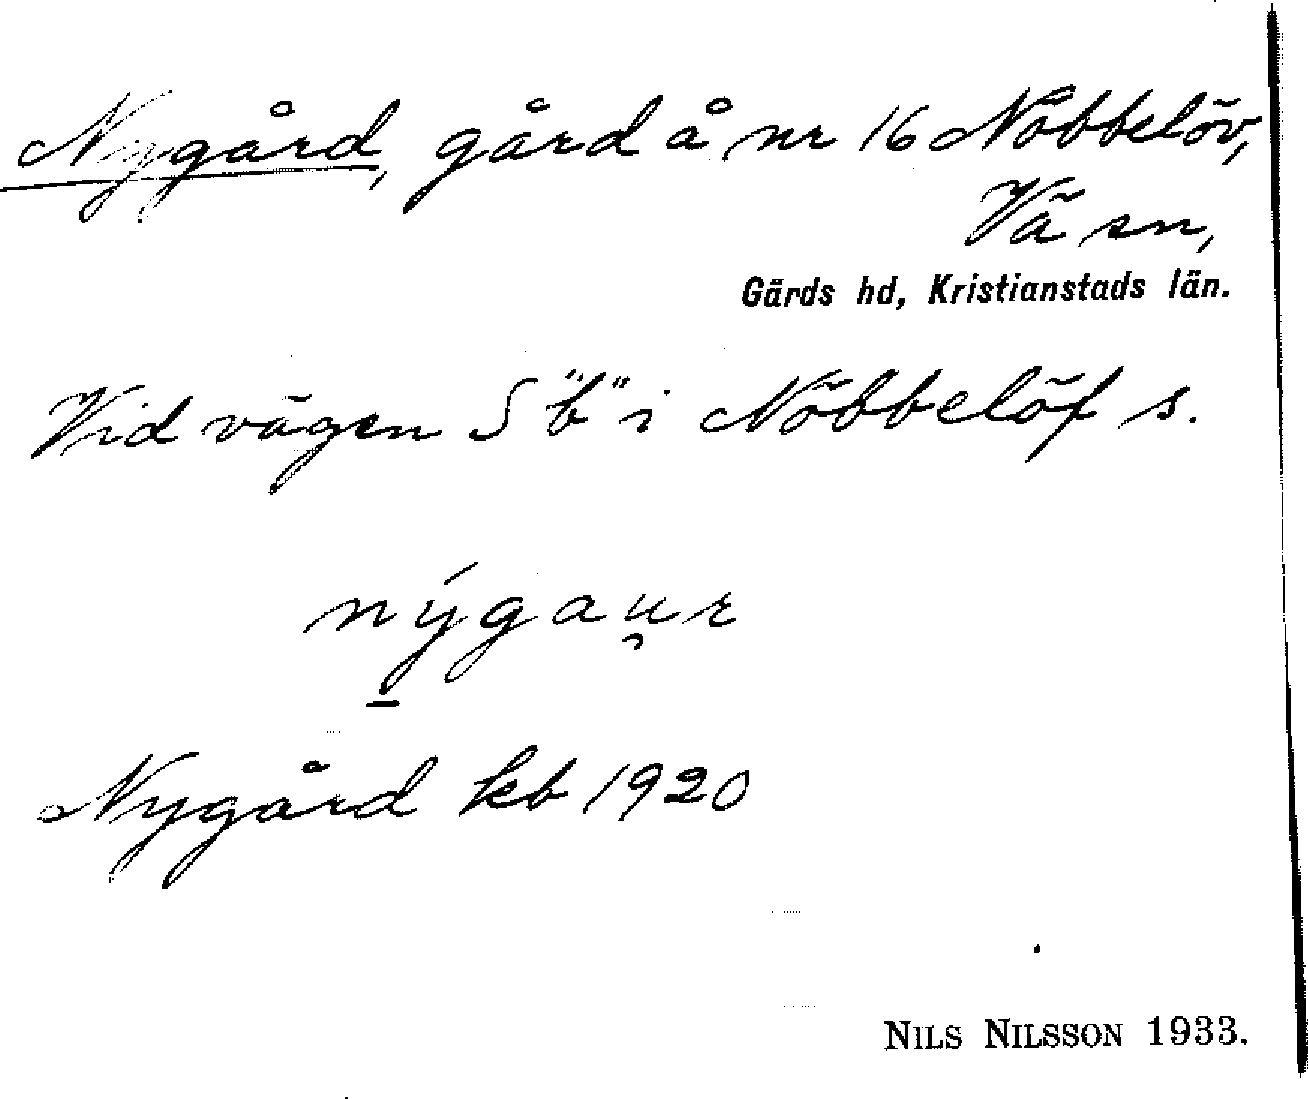 Nygård, gård å nr 16 Nöbbelöv,
Vä sn,
Gärds hd, Kristianstads län.
Vid vägen S "b" i Nöbbelöf s.
nýgau̯r
Nygård kb 1920
NILS NILSSON 1933.